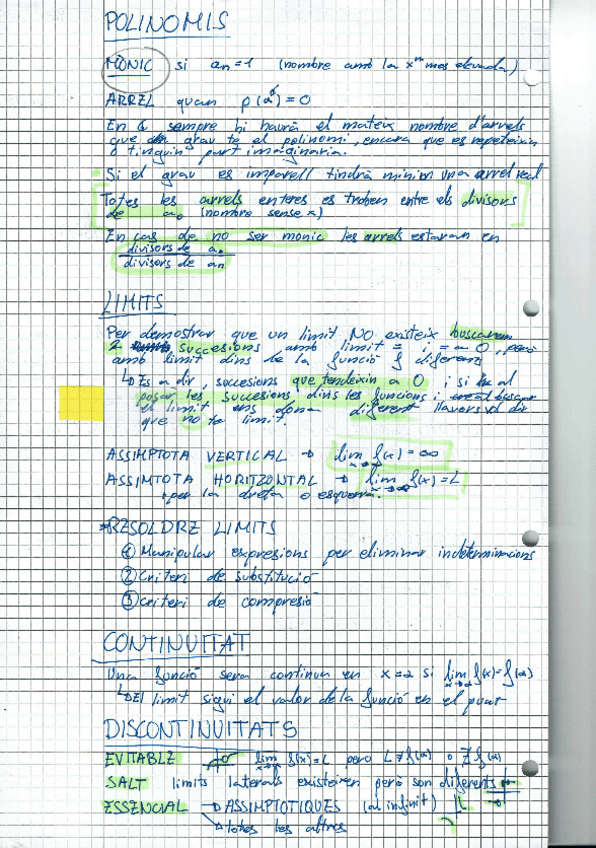 POLINOMIS
MÒNIC si an = 1 (nombre amb la xⁿ mes elevada)
ARREL quan p(α) = 0
En C sempre hi haurà el mateix nombre d'arrels
que grau te el polinomi, encara que es repeteixin
o tinguin part imaginaria.
Si el grau es imparell tindrà minim una arrel real
Totes les arrels enteres es troben entre els divisors
de a₀ (nombre sense x)
En cas de no ser monic les arrels estaran en
divisors de a₀
divisors de an
LIMITS
Per demostrar que un limit NO existeix buscarem
2 succesions amb limit = i = a 0, però
amb limit dins de la funció f diferent
↳ Es a dir, succesions que tendeixin a 0 i si al
posar les succesions dins les funcions i buscar
el limit ens dona diferent llavors vol dir
que no te limit.
ASSIMPTOTA VERTICAL → lim f(x) = ∞
ASSIMTOTA HORITZONTAL → lim f(x) = L
per la dreta o esquerra.
RESOLDRE LIMITS
① Manipular expresions per eliminar indeterminacions
② Criteri de substitució
③ Criteri de compresió
CONTINUITAT
Una funció sera continua en x = a si lim f(x) = f(a)
↳ El limit sigui el valor de la funció en el punt
DISCONTINUITATS
EVITABLE lim f(x) = L pero L ≠ f(a) o ∄ f(a)
SALT limits laterals existeixen però son diferents
ESSENCIAL → ASSIMPTOTIQUES (al infinit)
→ totes les altres